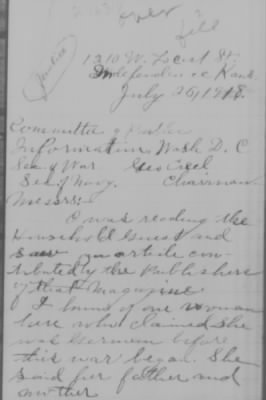 over
file
Justice
1310 W. Locust St.
Independence Kans.
July 26, 1918.
Committee of Public
Information Wash D. C
Sec of War. Geo Creel
Sec of Navy. Chairman
Messrs:
I was reading the
Household Guest and
saw an article con
tributed by the Publishers
of that Magazine
I know of one woman
here who claimed she
was German before
this war began. She
said her father and
mother